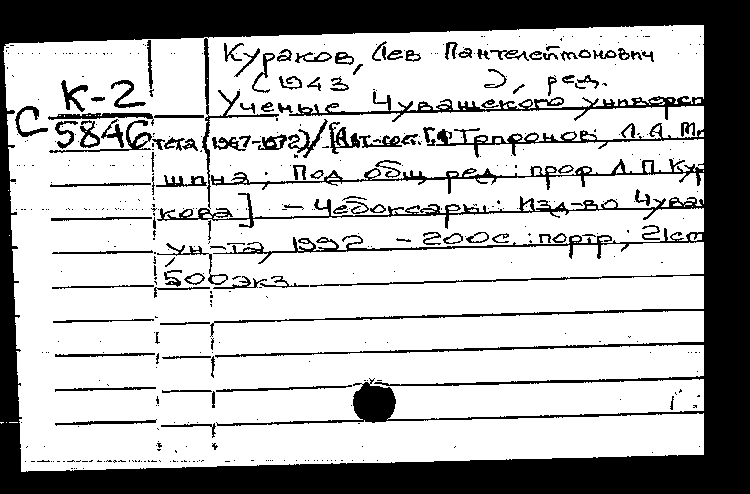 Кураков, Лев Пантелеймонович
(1943 ), ред.
К-2
Ученые Чувашского университ
С
5846
тета (1967-1972)/[Авт.-сост. Г.Ф. Трифонов, Л.А. Ми
шина; Под общ. ред.: проф. Л.П. Кур
кова] - Чебоксары: Изд-во Чува
ун-та, 1992. - 200с. : портр.; 21см
500экз.